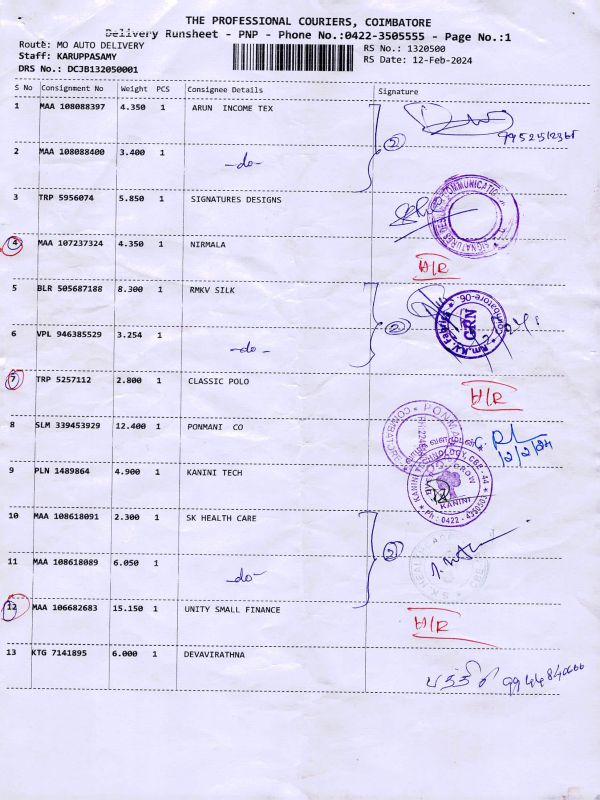 THE PROFESSIONAL COURIERS, COIMBATORE
Delivery Runsheet - PNP - Phone No.:0422-3505555 - Page No.:1
Route: MO AUTO DELIVERY
RS No.: 1320500
Staff: KARUPPASAMY
RS Date: 12-Feb-2024
DRS No.: DCJB132050001
S No Consignment No Weight PCS Consignee Details Signature
1 MAA 108088397 4.350 1 ARUN INCOME TEX
2 MAA 108088400 3.400 1 -do- 2
3 TRP 5956074 5.850 1 SIGNATURES DESIGNS
4 MAA 107237324 4.350 1 NIRMALA A/R
5 BLR 505687188 8.300 1 RMKV SILK
6 VPL 946385529 3.254 1 -do- 2 GRN
7 TRP 5257112 2.800 1 CLASSIC POLO A/R
8 SLM 339453929 12.400 1 PONMANI CO 12/2/24
9 PLN 1489864 4.900 1 KANINI TECH KANINI
10 MAA 108618091 2.300 1 SK HEALTH CARE
11 MAA 108618089 6.050 1 -do- 2
12 MAA 106682683 15.150 1 UNITY SMALL FINANCE A/R
13 KTG 7141895 6.000 1 DEVAVIRATHNA